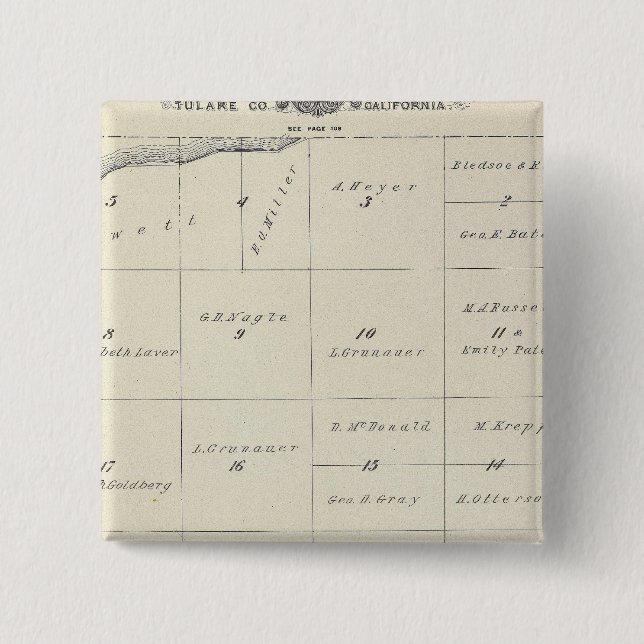 TULARE CO. CALIFORNIA.
SEE PAGE 108
5 4 E.J. Miller
A. Heyer
3
Bledsoe & E
2
Geo. E. Bate
wett
G.D. Nagle
9
8
beth Laver
10
L. Grunauer
M.A. Russe
11 &
Emily Pate
L. Grunauer
16
17
Goldberg
D. McDonald
15
Geo. H. Gray
M. Krepp
14
H. Otterso